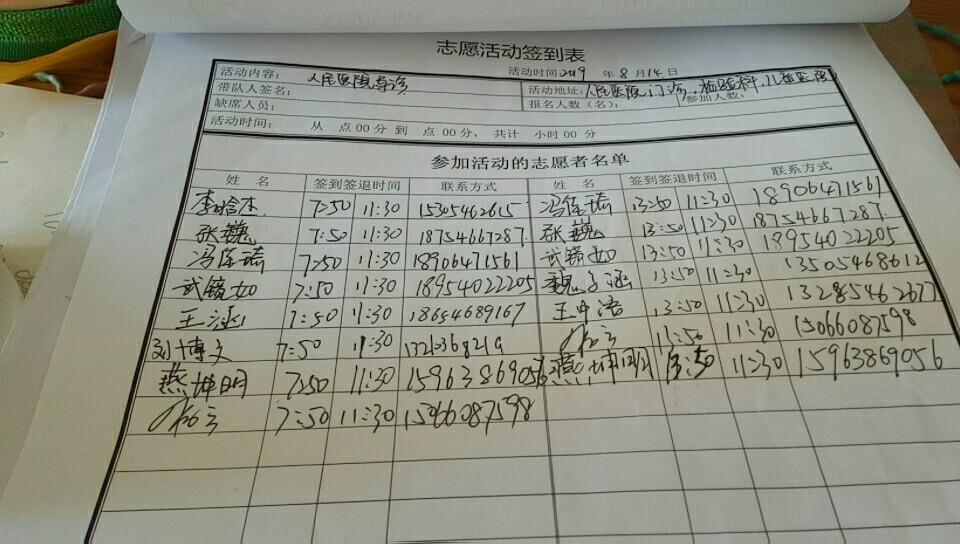 志愿活动签到表
活动内容： 人民医院导诊 活动时间2019 年 8 月 14 日
带队人签名： 活动地址：人民医院门诊，检验科，儿童
缺席人员： 报名人数（名）： 参加人数：
活动时间： 从 点00 分 到 点 00 分， 共计 小时 00 分
参加活动的志愿者名单
姓 名 签到签退时间 联系方式 姓 名 签到签退时间 联系方式
李晗杰 7:50 11:30 15305462615 冯保瑞 13:50 11:30 18906471561
张巍 7:50 11:30 18754667287 张巍 13:50 11:30 18754667287
冯保瑞 7:50 11:30 18906471561 武毓如 13:50 11:30 18954022205
武毓如 7:50 11:30 18954022205 魏子涵 13:50 11:30 13505468612
王涵 7:50 11:30 18654689167 王中浩 13:50 11:30 13285462677
刘博文 7:50 11:30 13:50 11:30 15066087598
燕坤明 7:50 11:30 15963869056 燕坤明 13:50 11:30 15963869056
7:50 11:30 15066087598